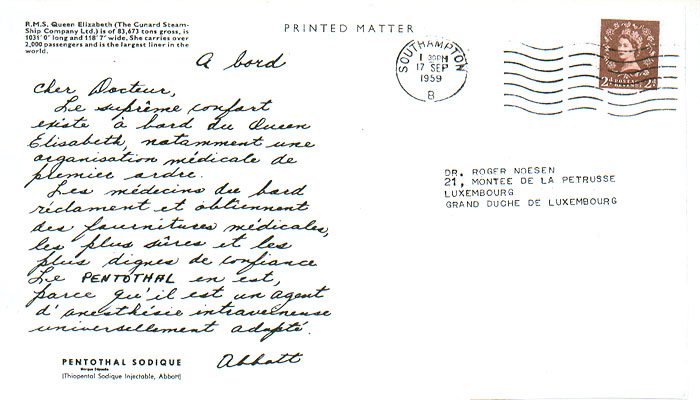 R.M.S. Queen Elizabeth (The Cunard Steam-
Ship Company Ltd.) is of 83,673 tons gross, is
1031' 0" long and 118' 7" wide. She carries over
2,000 passengers and is the largest liner in the
world.
PRINTED MATTER
A bord
Cher Docteur,
Le suprême confort
existe à bord du Queen
Elisabeth, notamment une
organisation médicale de
premier ordre.
Les médecins du bord
réclament et obtiennent
des fournitures médicales,
les plus sûres et les
plus dignes de confiance
Le PENTOTHAL en est,
parce qu'il est un agent
d'anesthésie intraveineuse
universellement adopté.
Abbott
PENTOTHAL SODIQUE
Marque Déposée
(Thiopental Sodique Injectable, Abbott)
SOUTHAMPTON
1 30PM
17 SEP
1959
B
2D POSTAGE REVENUE 2D
DR. ROGER NOESEN
21, MONTEE DE LA PETRUSSE
LUXEMBOURG
GRAND DUCHE DE LUXEMBOURG